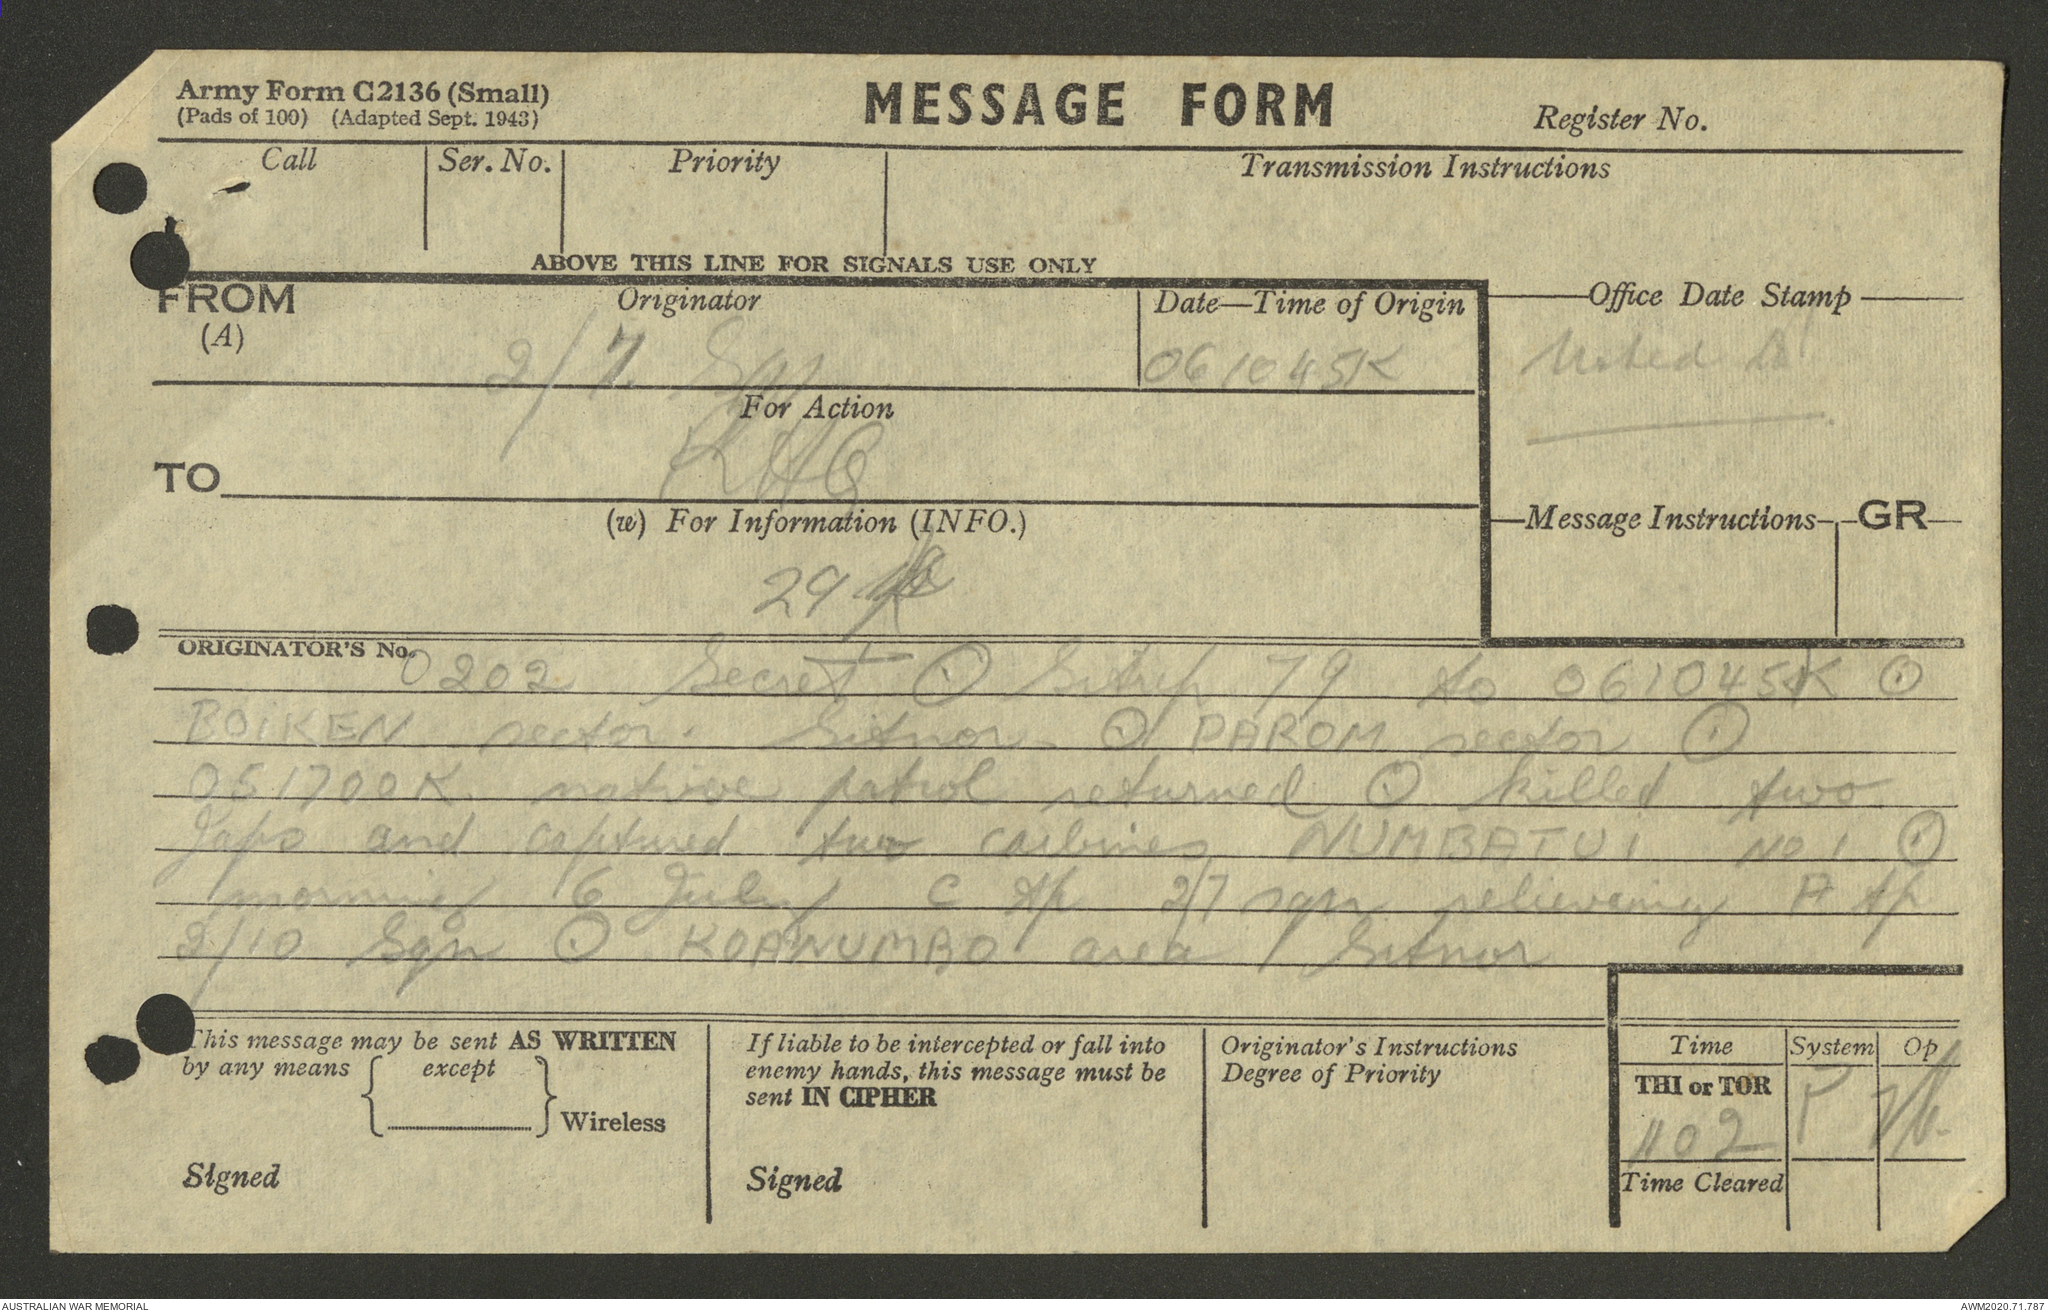 Army Form C2136 (Small)
(Pads of 100) (Adapted Sept. 1943)
MESSAGE FORM
Register No.
Call
Ser. No.
Priority
Transmission Instructions
ABOVE THIS LINE FOR SIGNALS USE ONLY
FROM
(A)
Originator
2/7 Sqn
Date—Time of Origin
061045K
Office Date Stamp
Noted
For Action
TO
(w) For Information (INFO.)
29
Message Instructions
GR
ORIGINATOR'S No.
0202 Secret ⊙ Sitrep 79 to 061045K ⊙
BOIKEN sector. Sitnor ⊙ PAROM sector ⊙
051700K native patrol returned ⊙ killed two
Japs and captured two carbines NUMBATUI No 1 ⊙
morning 6 July C Tp 2/7 sqn relieving A Tp
2/10 Sqn ⊙ KOANUMBO area / Sitnor
This message may be sent AS WRITTEN
by any means except
Wireless
Signed
If liable to be intercepted or fall into
enemy hands, this message must be
sent IN CIPHER
Signed
Originator's Instructions
Degree of Priority
Time
System
Op
THI or TOR
1102
Time Cleared
AUSTRALIAN WAR MEMORIAL
AWM2020.71.787